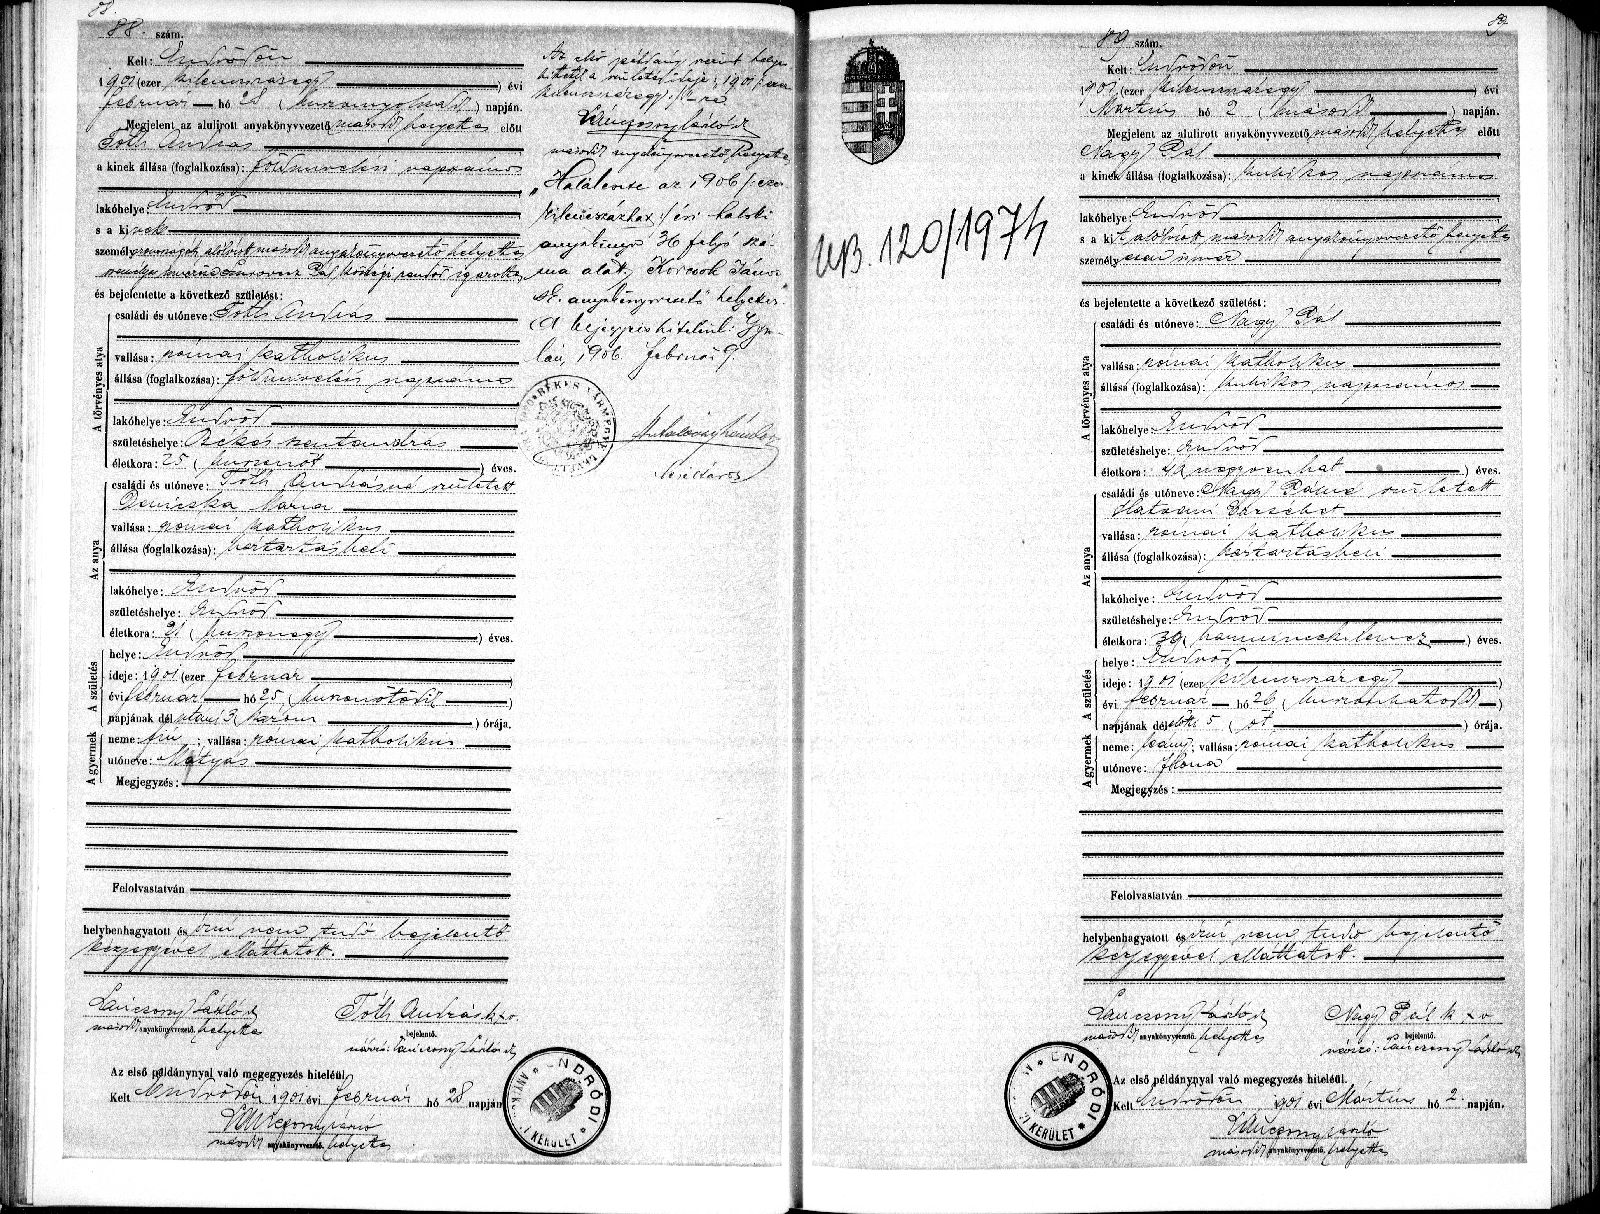 88.
88. szám.
Kelt: Endrődön
1901 (ezer kilenczszázegy) évi
február hó 28 (huszonnyolcadik) napján.
Megjelent az alulirott anyakönyvvezető másod helyettes előtt
Tóth András
a kinek állása (foglalkozása): földmivelési napszámos
lakóhelye: Endrőd
s a kinek
személyazonosságát alólirott másod anyakönyvvezető helyettes
Pál községi rendőr igazolta
és bejelentette a következő születést:
A törvényes atya
családi és utóneve: Tóth András
vallása: római katholikus
állása (foglalkozása): földmivelési napszámos
lakóhelye: Endrőd
születéshelye: Békésszentandrás
életkora: 25 (huszonöt) éves.
Az anya
családi és utóneve: Tóth Andrásné született
Demicska Mária
vallása: római katholikus
állása (foglalkozása): háztartásbeli
lakóhelye: Endrőd
születéshelye: Endrőd
életkora: 21 (huszonegy) éves.
A születés
helye: Endrőd
ideje: 1901 (ezer február
évi február hó 25 (huszonötödik)
napjának délutáni 3 (három) órája.
A gyermek
neme: fiu; vallása: római katholikus
utóneve: Mátyás
Megjegyzés:
Felolvastatván
helybenhagyatott és irni nem tudó bejelentő
kézjegyével elláttatott.
Láncsony László
másod anyakönyvvezető. helyettes
Tóth András k x v.
bejelentő.
névíró: Láncsony László
Az első példánynyal való megegyezés hiteléül.
Kelt Endrődön 1901 évi február hó 28 napján
Láncsony László
másod anyakönyvvezető. helyettes
ENDRŐDI KERÜLET
Az első példány szerint helye-
sbittetik a születés ideje: 1901 /: ezer
kilenczszázegy :/ -re
Láncsony László
másod anyakönyvvezető helyettes
"Halálesete az 1906 /: ezer
kilenczszázhat :/ évi halotti
anyakönyv 36 folyó szá-
ma alatt, Korcsok János
s. k. anyakönyvvezető helyettes."
A bejegyzés hiteléül: Gyu-
lán, 1906. február 9.
BÉKÉS VÁRMEGYE
levéltáros
UB. 120/1974
89
89 szám.
Kelt: Endrődön
1901 (ezer kilenczszázegy) évi
Mártius hó 2 (második) napján.
Megjelent az alulirott anyakönyvvezető, másod helyettes előtt
Nagy Pál
a kinek állása (foglalkozása): kubikos napszámos
lakóhelye: Endrőd
s a kit alólirott másod anyakönyvvezető helyettes
személyesen ismer
és bejelentette a következő születést:
A törvényes atya
családi és utóneve: Nagy Pál
vallása: római katholikus
állása (foglalkozása): kubikos napszámos
lakóhelye: Endrőd
születéshelye: Endrőd
életkora: negyvenhat) éves.
Az anya
családi és utóneve: Nagy Pálné született
Hatvani Erzsébet
vallása: római katholikus
állása (foglalkozása): háztartásbeli
lakóhelye: Endrőd
születéshelye: Endrőd
életkora: 39 (harminczkilencz) éves.
A születés
helye: Endrőd
ideje: 1901 (ezer kilenczszázegy)
évi február hó 26 (huszonhatodik)
napjának délelőtti 5 (öt) órája.
A gyermek
neme: leány; vallása: római katholikus
utóneve: Ilona
Megjegyzés:
Felolvastatván
helybenhagyatott és irni nem tudó bejelentő
kézjegyével elláttatott.
Láncsony László
másod anyakönyvvezető. helyettes
Nagy Pál k x v
bejelentő.
névíró: Láncsony László
Az első példánynyal való megegyezés hiteléül.
Kelt Endrődön 1901 évi Mártius hó 2. napján.
Láncsony László
másod anyakönyvvezető. helyettes
ENDRŐDI KERÜLET